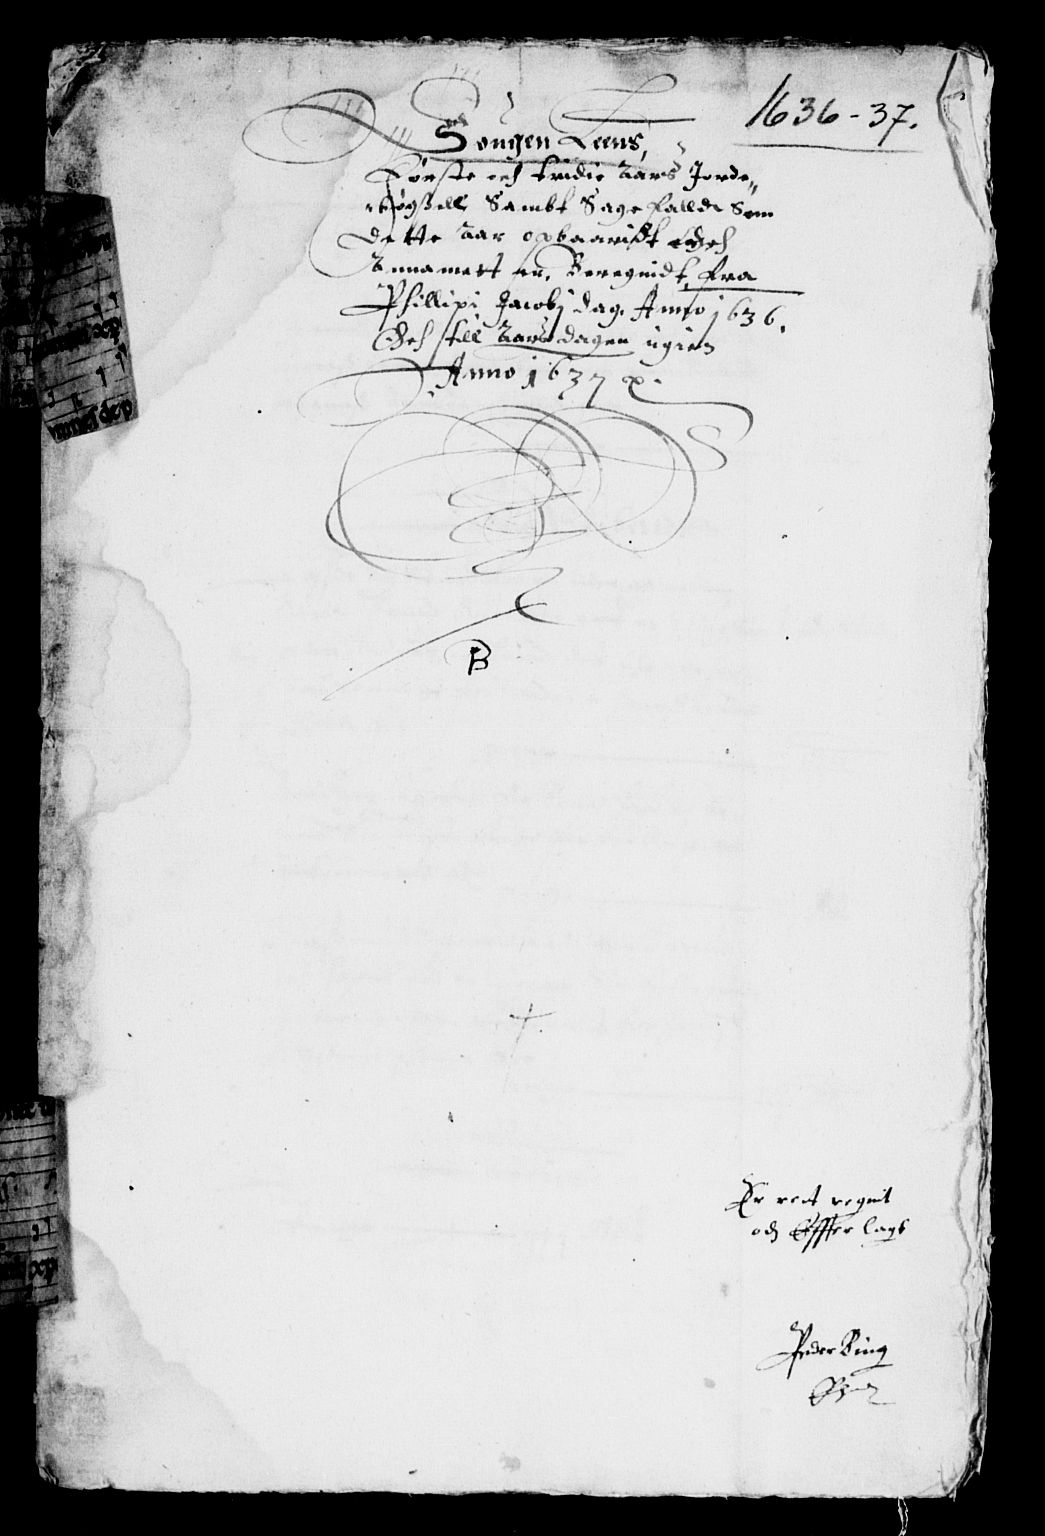 1636-37.
Songen Leens,
Første och tridie Aars Jorde„
bøgszell Sambt Sagefalld Som
dette Aar opbaarist Och
Annamett er, Beregnidt, fra
Phillipi Jacobj dag, Anno 1636.
Och till Aars dagen igien
Anno 1637
B
Er reet regnit
och Offuer lagt
Peder Ring